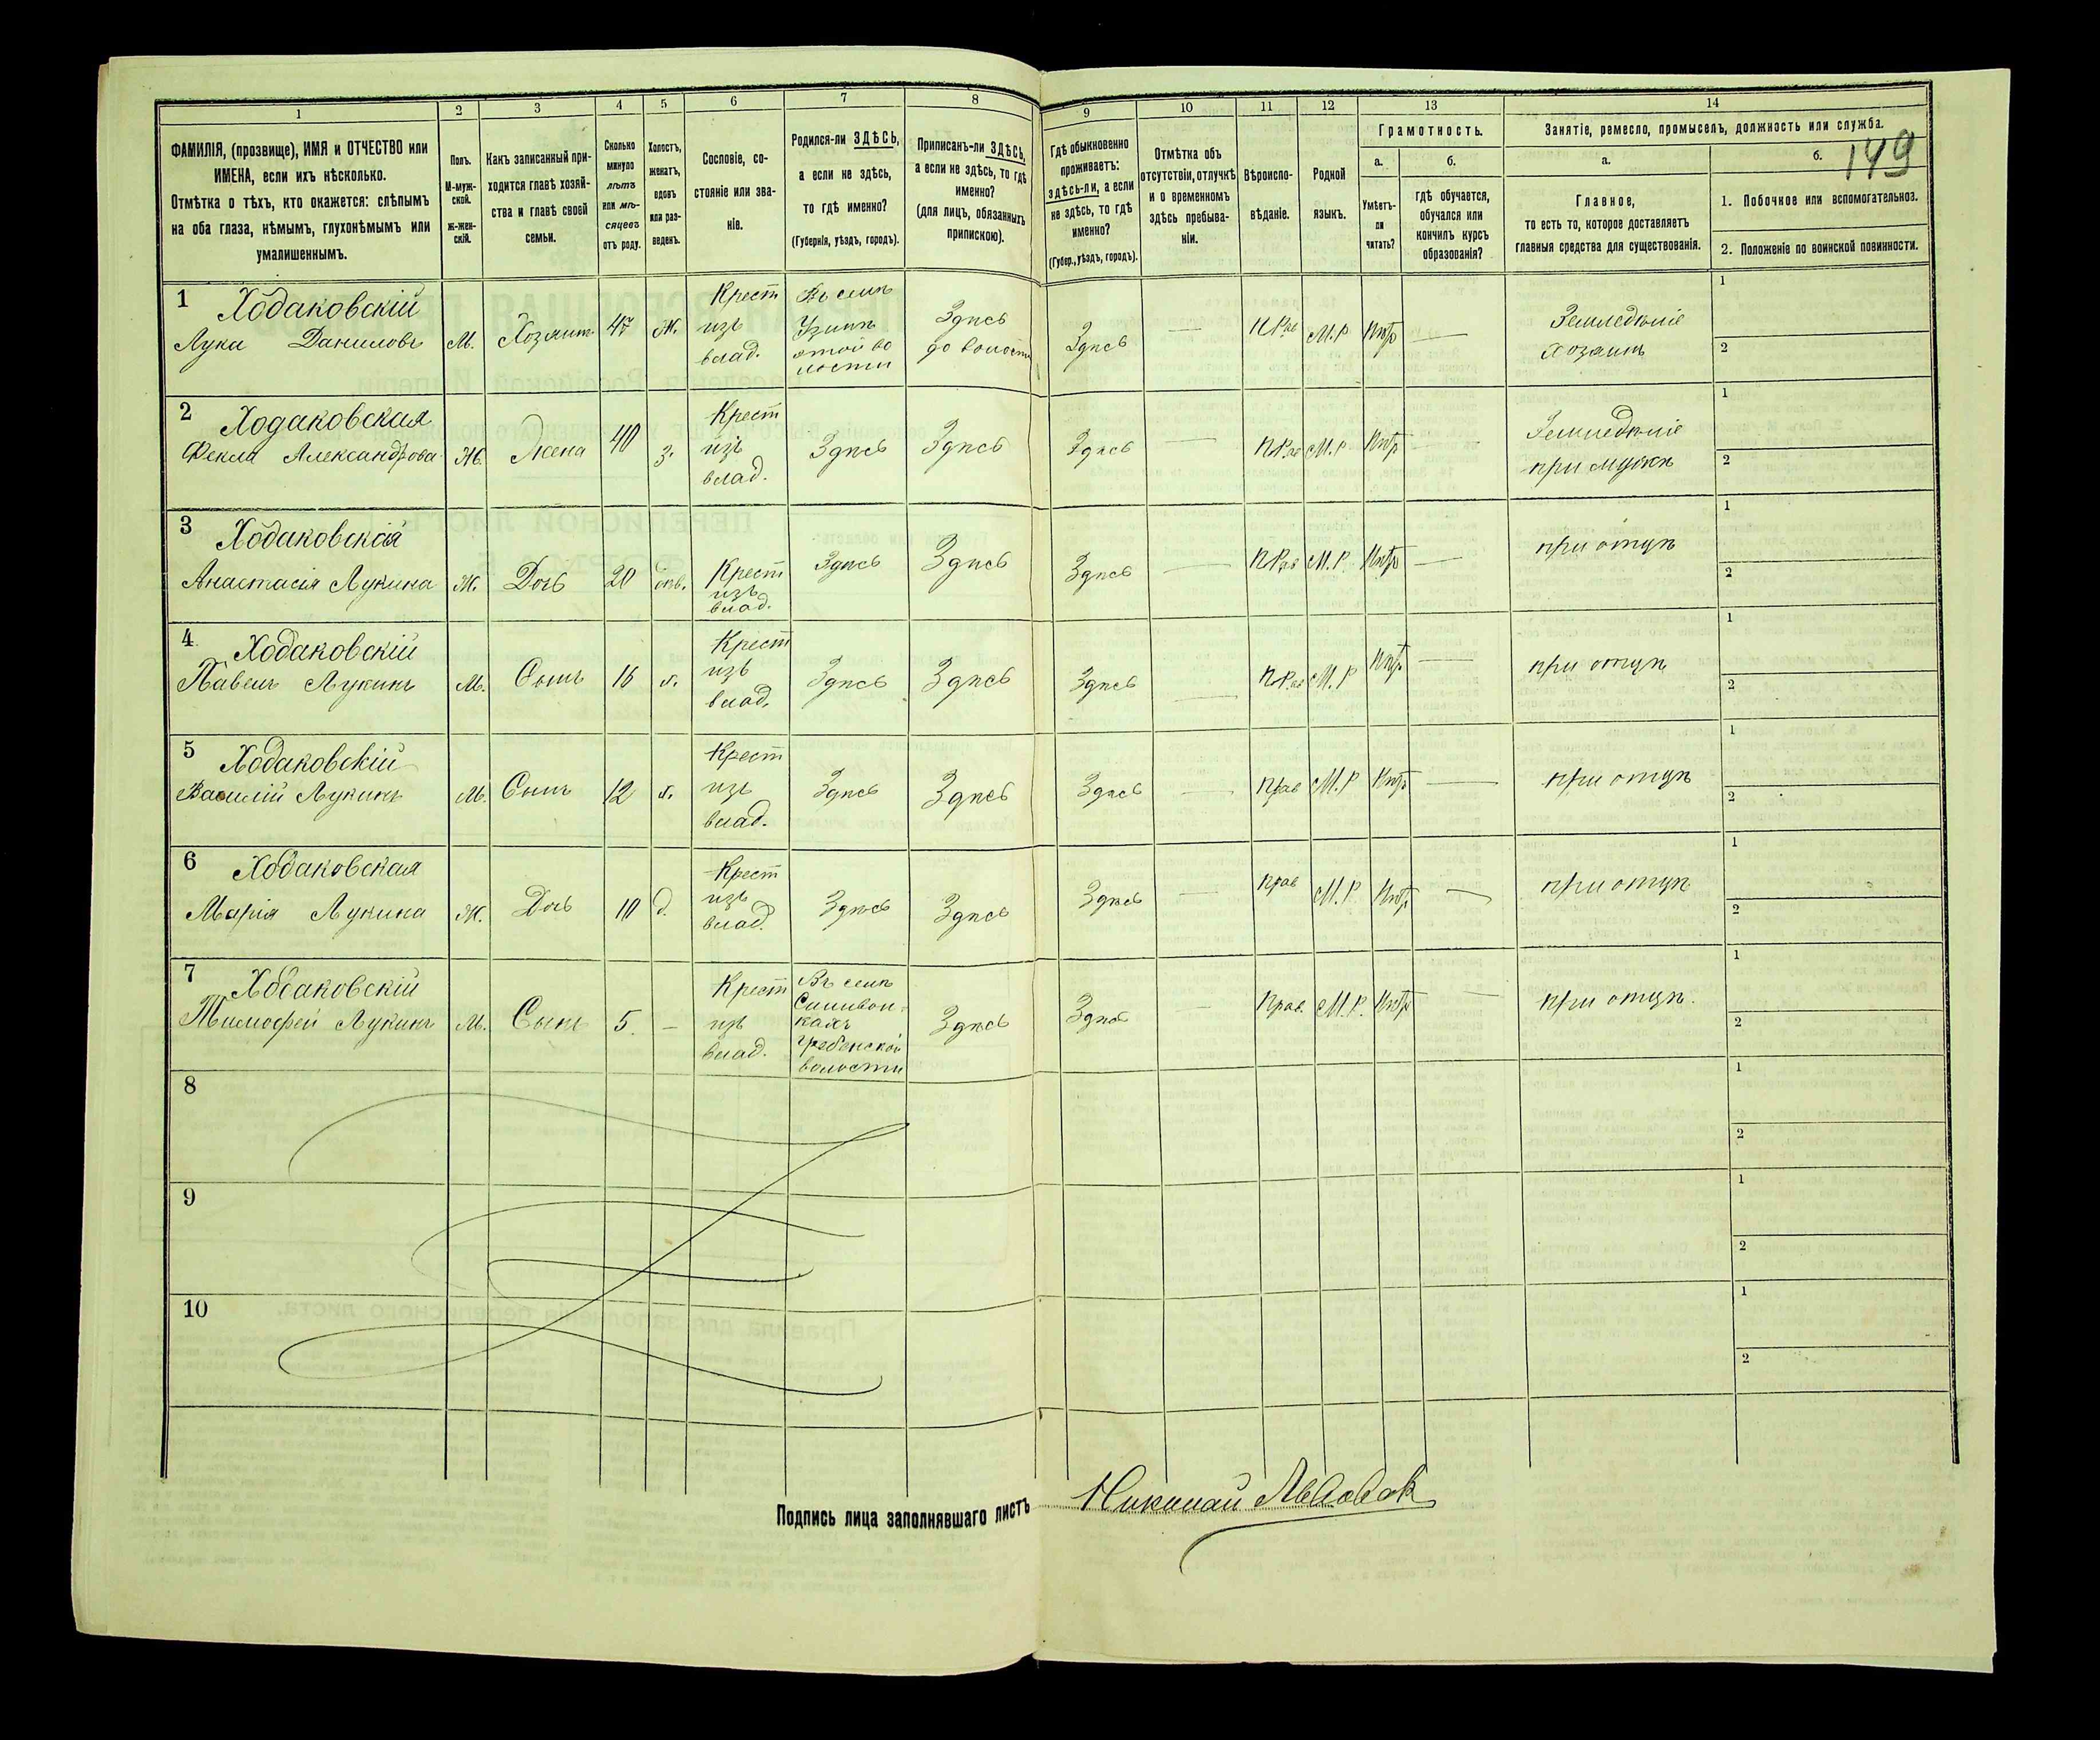 1 2 3 4 5 6 7 8 9 10 11 12 13 14
149
ФАМИЛІЯ, (прозвище), ИМЯ и ОТЧЕСТВО или
ИМЕНА, если ихъ нѣсколько.
Отмѣтка о тѣхъ, кто окажется: слѣпымъ
на оба глаза, нѣмымъ, глухонѣмымъ или
умалишеннымъ.
Полъ.
М-муж-
ской.
Ж-жен-
скій.
Какъ записанный при-
ходится главѣ хозяй-
ства и главѣ своей
семьи.
Сколько
минуло
лѣтъ
или мѣ-
сяцевъ
отъ роду.
Холостъ,
женатъ,
вдовъ
или раз-
веденъ.
Сословіе, со-
стояніе или зва-
ніе.
Родился-ли ЗДѢСЬ,
а если не здѣсь,
то гдѣ именно?
(Губернія, уѣздъ, городъ).
Приписанъ-ли ЗДѢСЬ,
а если не здѣсь, то гдѣ
именно?
(для лицъ, обязанныхъ
припискою).
Гдѣ обыкновенно
проживаетъ:
здѣсь-ли, а если
не здѣсь, то гдѣ
именно?
(Губер., уѣздъ, городъ).
Отмѣтка объ
отсутствіи, отлучкѣ
и о временномъ
здѣсь пребыва-
ніи.
Вѣроиспо-
вѣданіе.
Родной
языкъ.
Грамотность.
а.
Умѣетъ-
ли
читать?
б.
гдѣ обучается,
обучался или
кончилъ курсъ
образованія?
Занятіе, ремесло, промыселъ, должность или служба.
а.
Главное,
то есть то, которое доставляетъ
главныя средства для существованія.
б.
1. Побочное или вспомогательное.
2. Положеніе по воинской повинности.
1
Ходаковскій
Лука Даниловъ
М.
Хозяинъ
47
Ж.
Крест
изъ
влад.
Въ селѣ
этой во
лости
Здѣсь
Здѣсь
М.Р
Нѣтъ
Земледѣліе
хозяинъ
1
2
2
Ходаковская
Фекла Александрова
Ж.
Жена
40
з.
Крест
изъ
влад.
Здѣсь
Здѣсь
Здѣсь
М.Р
Нѣтъ
Земледѣліе
при мужѣ
1
2
3
Ходаковская
Анастасія Лукина
Ж.
Дочь
20
Крест
изъ
влад.
Здѣсь
Здѣсь
Здѣсь
М.Р.
Нѣтъ
при отцѣ
1
2
4
Ходаковскій
Павелъ Лукинъ
М.
Сынъ
Крест
изъ
влад.
Здѣсь
Здѣсь
Здѣсь
М.Р
Нѣтъ
при отцѣ
1
2
5
Ходаковскій
Василій Лукинъ
М.
Сынъ
12
Крест
изъ
влад.
Здѣсь
Здѣсь
Здѣсь
Прав
М.Р
Нѣтъ
при отцѣ
1
2
6
Ходаковская
Марія Лукина
Ж.
Дочь
10
д.
Крест
изъ
влад.
Здѣсь
Здѣсь
Здѣсь
Прав
М.Р.
Нѣтъ
при отцѣ
1
2
7
Ходаковскій
Тимофей Лукинъ
М.
Сынъ
5.
Крест
изъ
влад.
Въ селѣ
Гребенской
волости
Здѣсь
Здѣсь
Прав.
М.Р.
Нѣтъ
при отцѣ.
1
2
8
1
2
9
1
2
10
1
2
Подпись лица заполнявшаго листъ
Николай